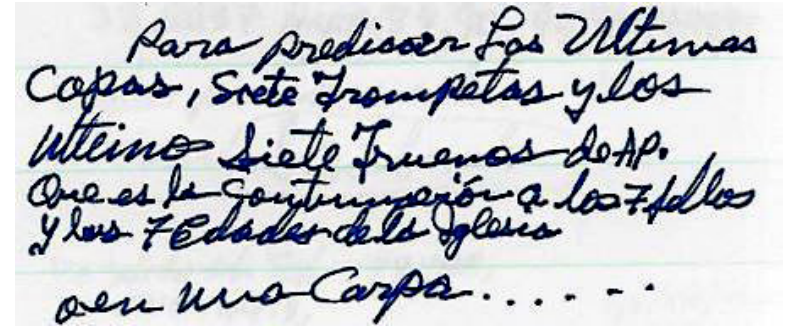 Para predicar Las Ultimas
Copas, Siete Trompetas y los
ultimo Siete Truenos de AP.
Que es la Continuación a los 7 Sellos
y las 7 Edades de la Iglesia
o en una Carpa......